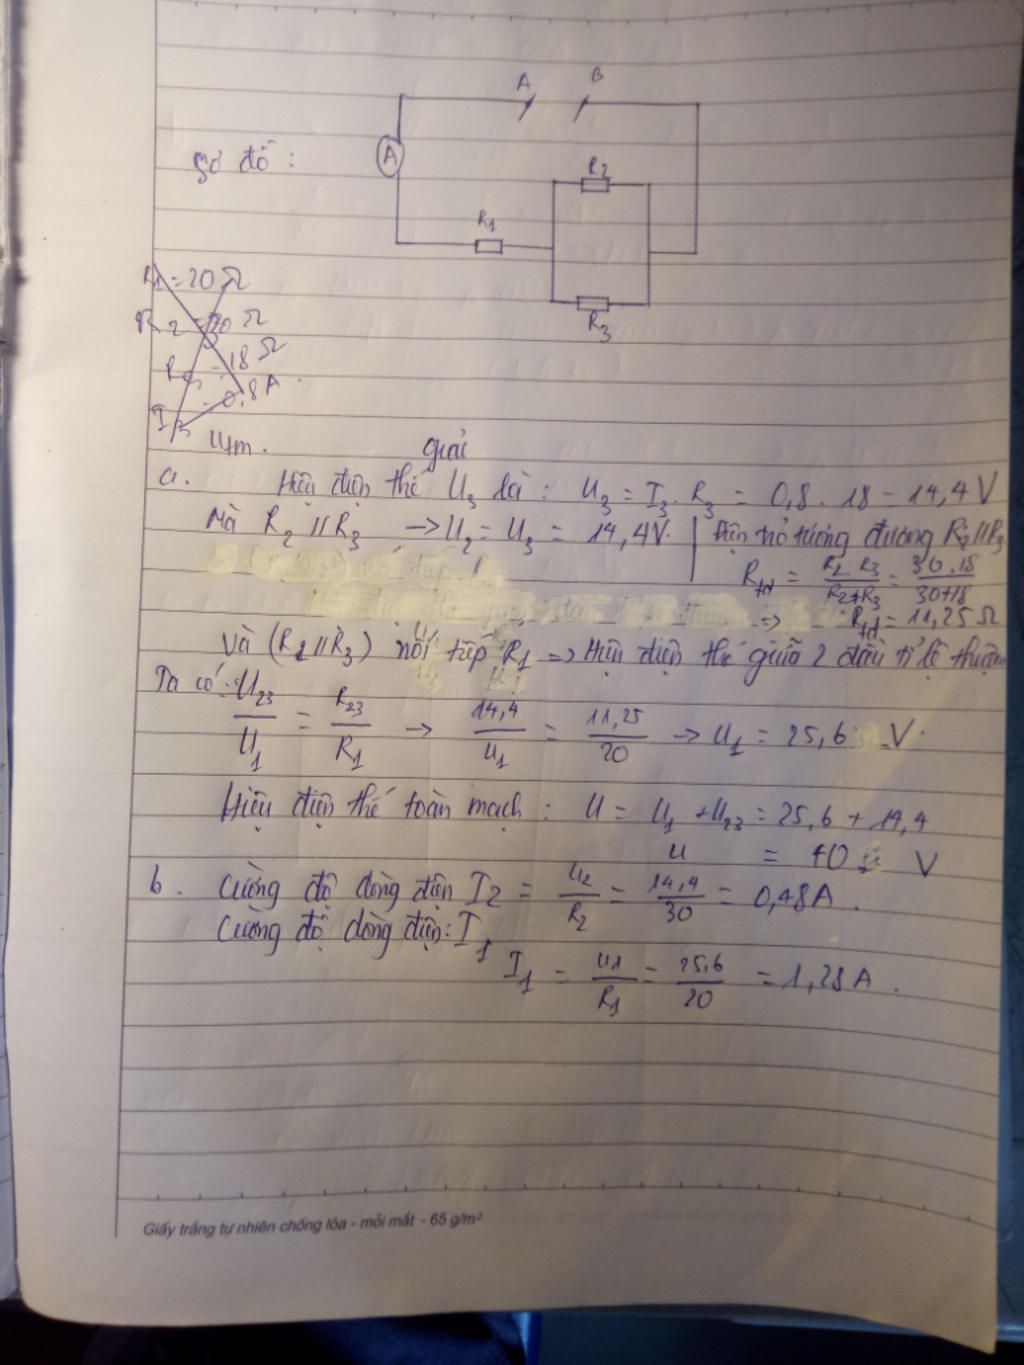 A B
sơ đồ : A
R2
R1
R3
R1 = 20 Ω
R2 = 30 Ω
= 18 Ω
I3 = 0,8 A
giải
a. Hiệu điện thế U3 là : U3 = I3 . R3 = 0,8 . 18 = 14,4 V
Mà R2 // R3 → U2 = U3 = 14,4V. | Điện trở tương đương R2//R3
Rtđ = R2. R3 / R2+R3 = 30.18 / 30+18
=> Rtđ = 11,25 Ω
Và (R2 // R3) nối tiếp R1 => Hiệu điện thế giữa 2 đầu tỉ lệ thuận
Ta có : U23 / U1 = R23 / R1 → 14,4 / U1 = 11,25 / 20 → U1 = 25,6 V.
Hiệu điện thế toàn mạch : U = U1 + U23 = 25,6 + 14,4
U = 40 V
b. Cường độ dòng điện I2 = U2 / R2 = 14,4 / 30 = 0,48A .
Cường độ dòng điện : I1
I1 = U1 / R1 = 25,6 / 20 = 1,28 A .
Giấy trắng tự nhiên chống lóa - mỏi mắt - 65 g/m²